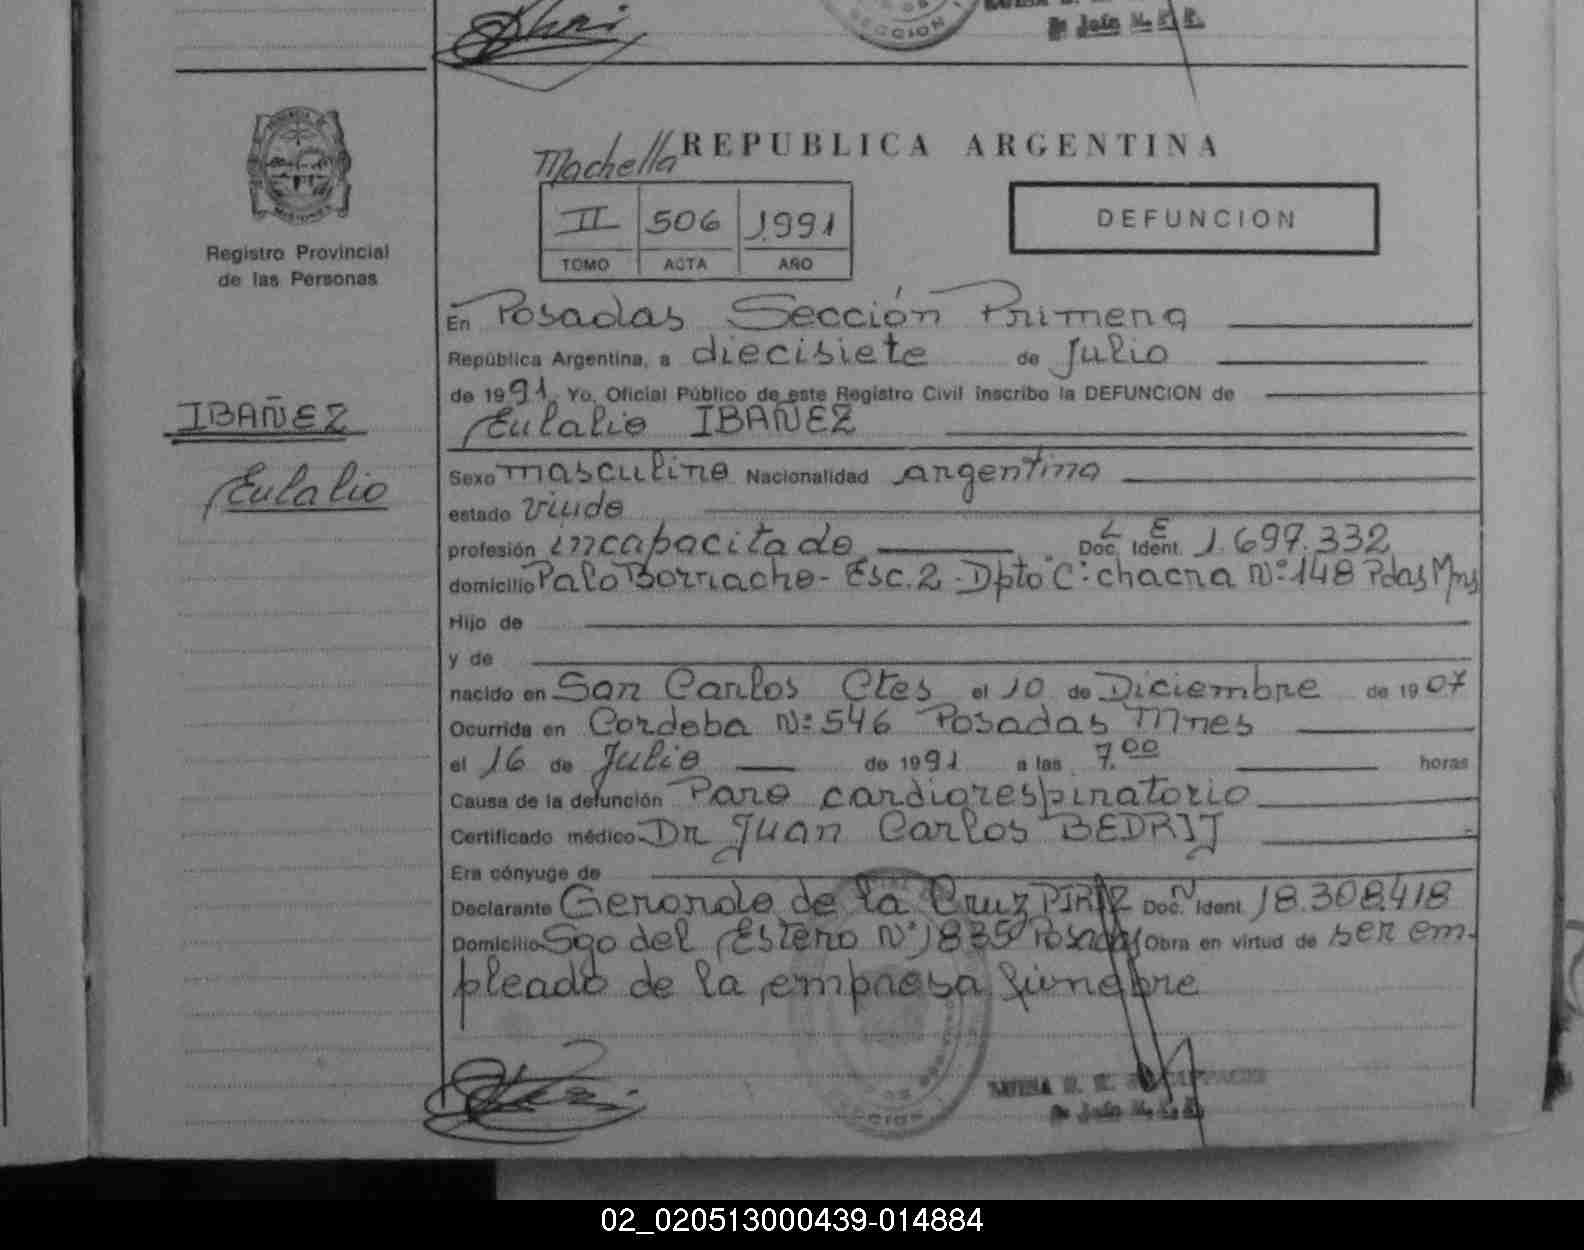 SECCION
Jefe
REPUBLICA ARGENTINA
Machella
II 506 1.991
TOMO ACTA AÑO
DEFUNCION
Registro Provincial
de las Personas
IBAÑEZ
Eulalio
En Posadas Sección Primera
República Argentina, a diecisiete de Julio
de 1991. Yo, Oficial Público de este Registro Civil inscribo la DEFUNCION de
Eulalio IBAÑEZ
Sexo masculino Nacionalidad argentina
estado viudo
profesión incapacitado. Doc. Ident. L E 1.697.332
domicilio Palo Borracho - Esc. 2 - Dpto "C": chacra Nº 148 Pdas Mns
Hijo de
y de
nacido en San Carlos Ctes el 10 de Diciembre de 1907
Ocurrida en Cordoba Nº 546 Posadas Mnes
el 16 de Julio de 1991 a las 7.00 horas
Causa de la defunción Paro cardiorespiratorio
Certificado médico Dr Juan Carlos BEDRIJ
Era cónyuge de
Declarante Gerardo de la Cruz PIRIZ Doc. Ident. 18.308.418
Domicilio Sgo del Estero Nº 1835 Posadas Obra en virtud de ser em-
pleado de la empresa fúnebre
SECCION
Jefe
02_020513000439-014884